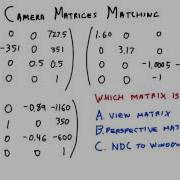 CAMERA MATRICES MATCHING
0 0 727.5
-351 0 351
0 0.5 0.5
0 0 1
1.60 0 0
0 3.17 0
0 0 -1.0005 -
0 0 -1
0 -0.89 -1160
1 0 350
0 -0.46 -600
0 0 1
WHICH MATRIX IS
A. VIEW MATRIX
B. PERSPECTIVE MAT
C. NDC TO WINDOW